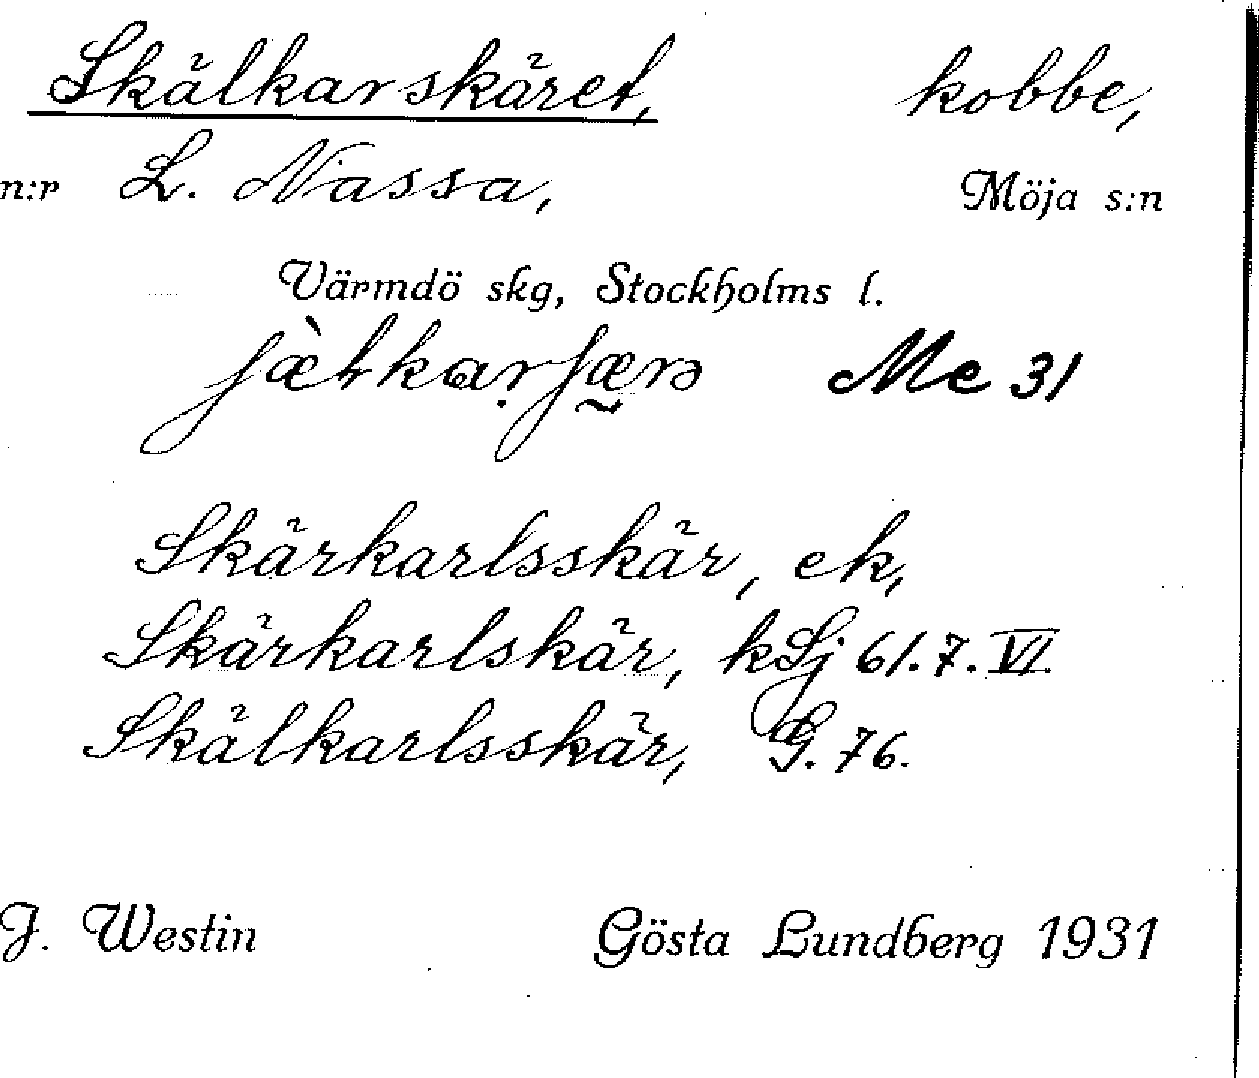 Skälkarskäret, kobbe,
n:r L. Nassa, Möja s:n
Värmdö skg, Stockholms l.
Me 31
Skärkarlsskär, ek,
Skärkarlskär, kSj 61.7.VI.
Skälkarlsskär, G. 76.
J. Westin Gösta Lundberg 1931